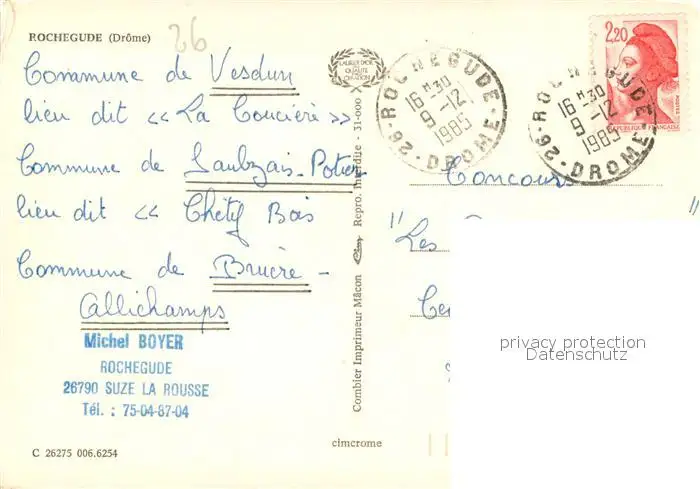 ROCHEGUDE (Drôme)
26
Commune de Vesdun
lieu dit << La Coucière >>
Commune de Saulzais-Potier
lieu dit << Chétif Bois
Commune de Bruère-
Allichamps
Michel BOYER
ROCHEGUDE
26790 SUZE LA ROUSSE
Tél. : 75-04-87-04
C 26275 006.6254
cimcrome
Combier Imprimeur Mâcon Cim Repro. Interdite - 31-000
LAURIER D'OR
DE QUALITÉ
CRÉATION
26-ROCHEGUDE-DROME-
16 H 30
9-12
1985
26-ROCHEGUDE-DROME-
16 H 30
9-12
1985
2,20
POSTES
REPUBLIQUE FRANÇAISE
Concours
" Les "
privacy protection
Datenschutz